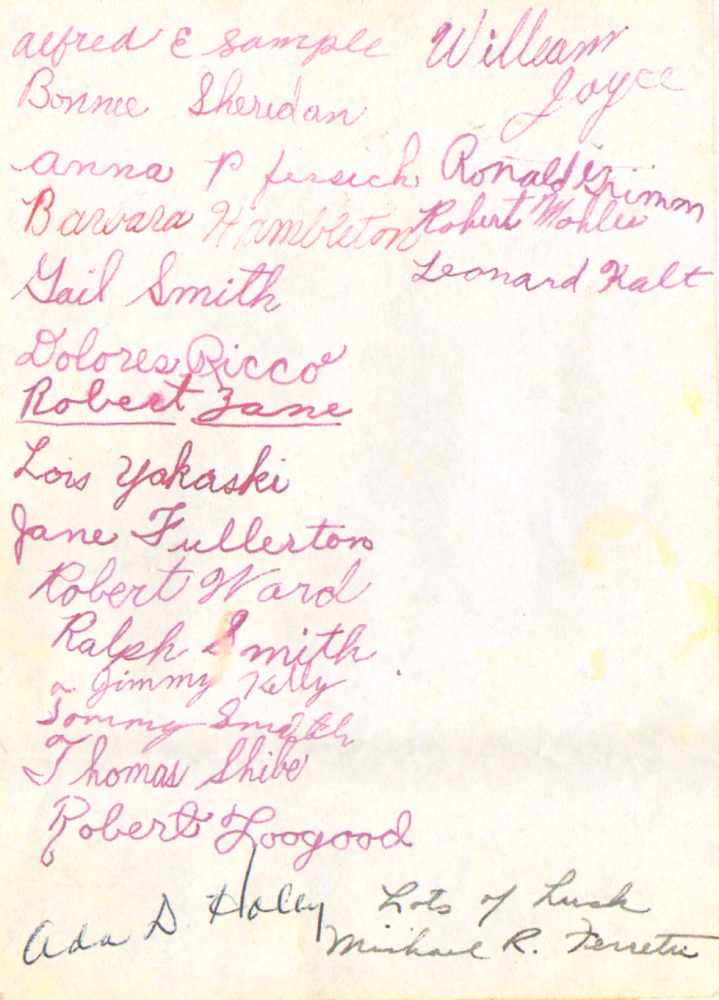 alfred E Sample
Bonnie Sheridan
anna P fersich
Barbara Hambleton
Gail Smith
Dolores Ricco
Robert Zane
Lois Yakaski
Jane Fullerton
Robert Ward
Ralph Smith
Jimmy Kelly
Tommy Smith
Thomas Shibe
Robert Toogood
Ada D. Holley
William
Joyce
Ronald Grimm
Robert Mohler
Leonard Kalt
Lots of Luck
Michael R.